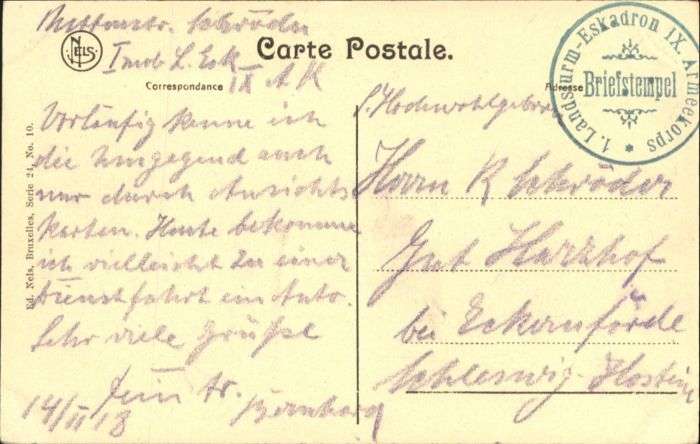 Rittmstr. Schröder
I mob. L. Esk
IX A K
NELS
Carte Postale.
Correspondance
Adresse
1. Landsturm-Eskadron IX. Armeekorps *
Briefstempel
Vorläufig kenne ich
die Umgegend auch
nur durch Ansichts
karten. Heute bekomme
ich vielleicht zu einer
Dienstfahrt ein Auto.
Sehr viele Grüße
Dein tr.
Bernhard
14/II 18
S. Hochwohlgeboren
Herrn R Schröder
Gut Harzhof
bei Eckernförde
Schleswig-Holstein
Ed. Nels, Bruxelles, Serie 24, No. 10.